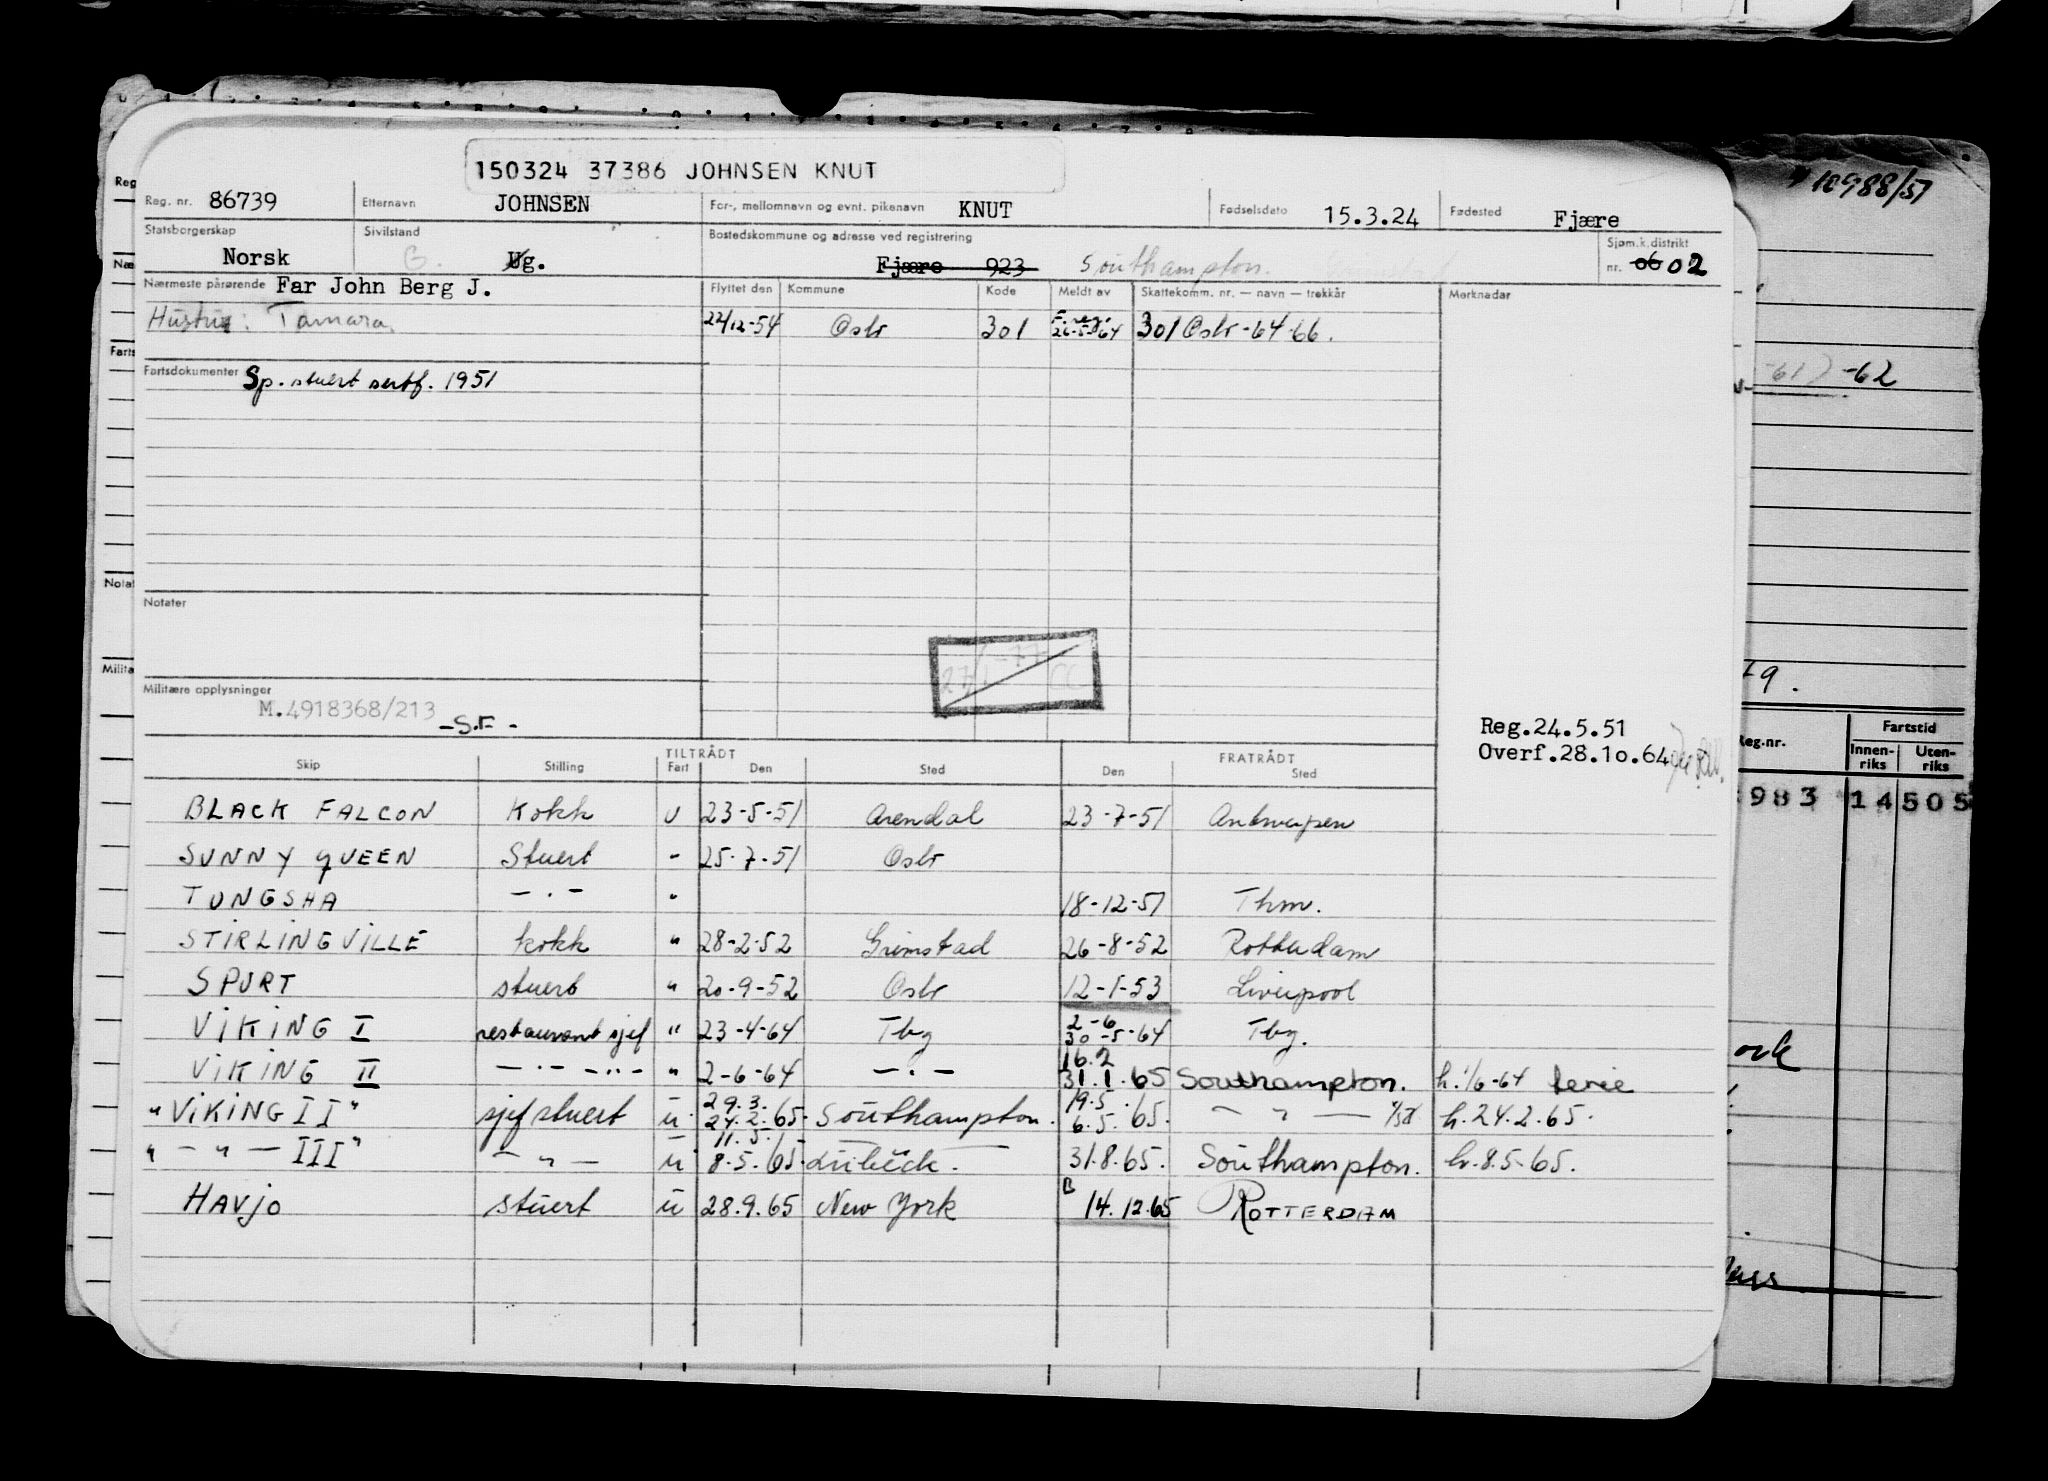 150324 37386 JOHNSEN KNUT
Reg. nr. 86739 Etternavn JOHNSEN For-, mellomnavn og evnt. pikenavn KNUT Fødselsdato 15.3.24 Fødested Fjære
Statsborgerskap Norsk Sivilstand G. Ug. Bostedskommune og adresse ved registrering Fjære 923 Southampton. Sjøm.k.distrikt nr. 06 02
Nærmeste pårørende Far John Berg J. Flyttet den Kommune Kode Meldt av Skattekomm. nr. — navn — trekkår Merknadar
Hustru: Tamara. 22/12-54 Oslo 301 301 Oslo-64-66.
Fartsdokumenter Sp. stuert sertf. 1951
Notater
27/1-77
Militære opplysninger
M.4918368/213 -S.F-
Reg.24.5.51
Overf.28.1o.64
TILTRÅDT FRATRÅDT
Skip Stilling Fart Den Sted Den Sted
BLACK FALCON Kokk U 23-5-51 Arendal 23-7-51 Antwerpen
SUNNY QUEEN Stuert " 25-7-51 Oslo
TUNGSHA — · — " 18-12-51 Thm.
STIRLINGVILLE kokk " 28-2-52 Grimstad 26-8-52 Rotterdam
SPURT stuert " 20-9-52 Oslo 12-1-53 Liverpool
2-6
VIKING I restaurant sjef " 23-4-64 Tbg 30-5-64 Tbg.
16.2
VIKING II — · — — " — " 2-6-64 — · — 31.1.65 Southampton. h. 1/6-64 ferie
29.3. 19.5
"VIKING II" sjefstuert u 24.2.65. Southampton. 6.5.65. — " — h. 24.2.65.
11.5.
" — " — III" — " — u 8.5.65. Lübeck. 31.8.65. Southampton. h. 8.5.65.
HAVJO stuert u 28.9.65 New York B 14.12.65 ROTTERDAM
10988/51
-62
Reg.nr. Fartstid
Innenriks Utenriks
983 14 505